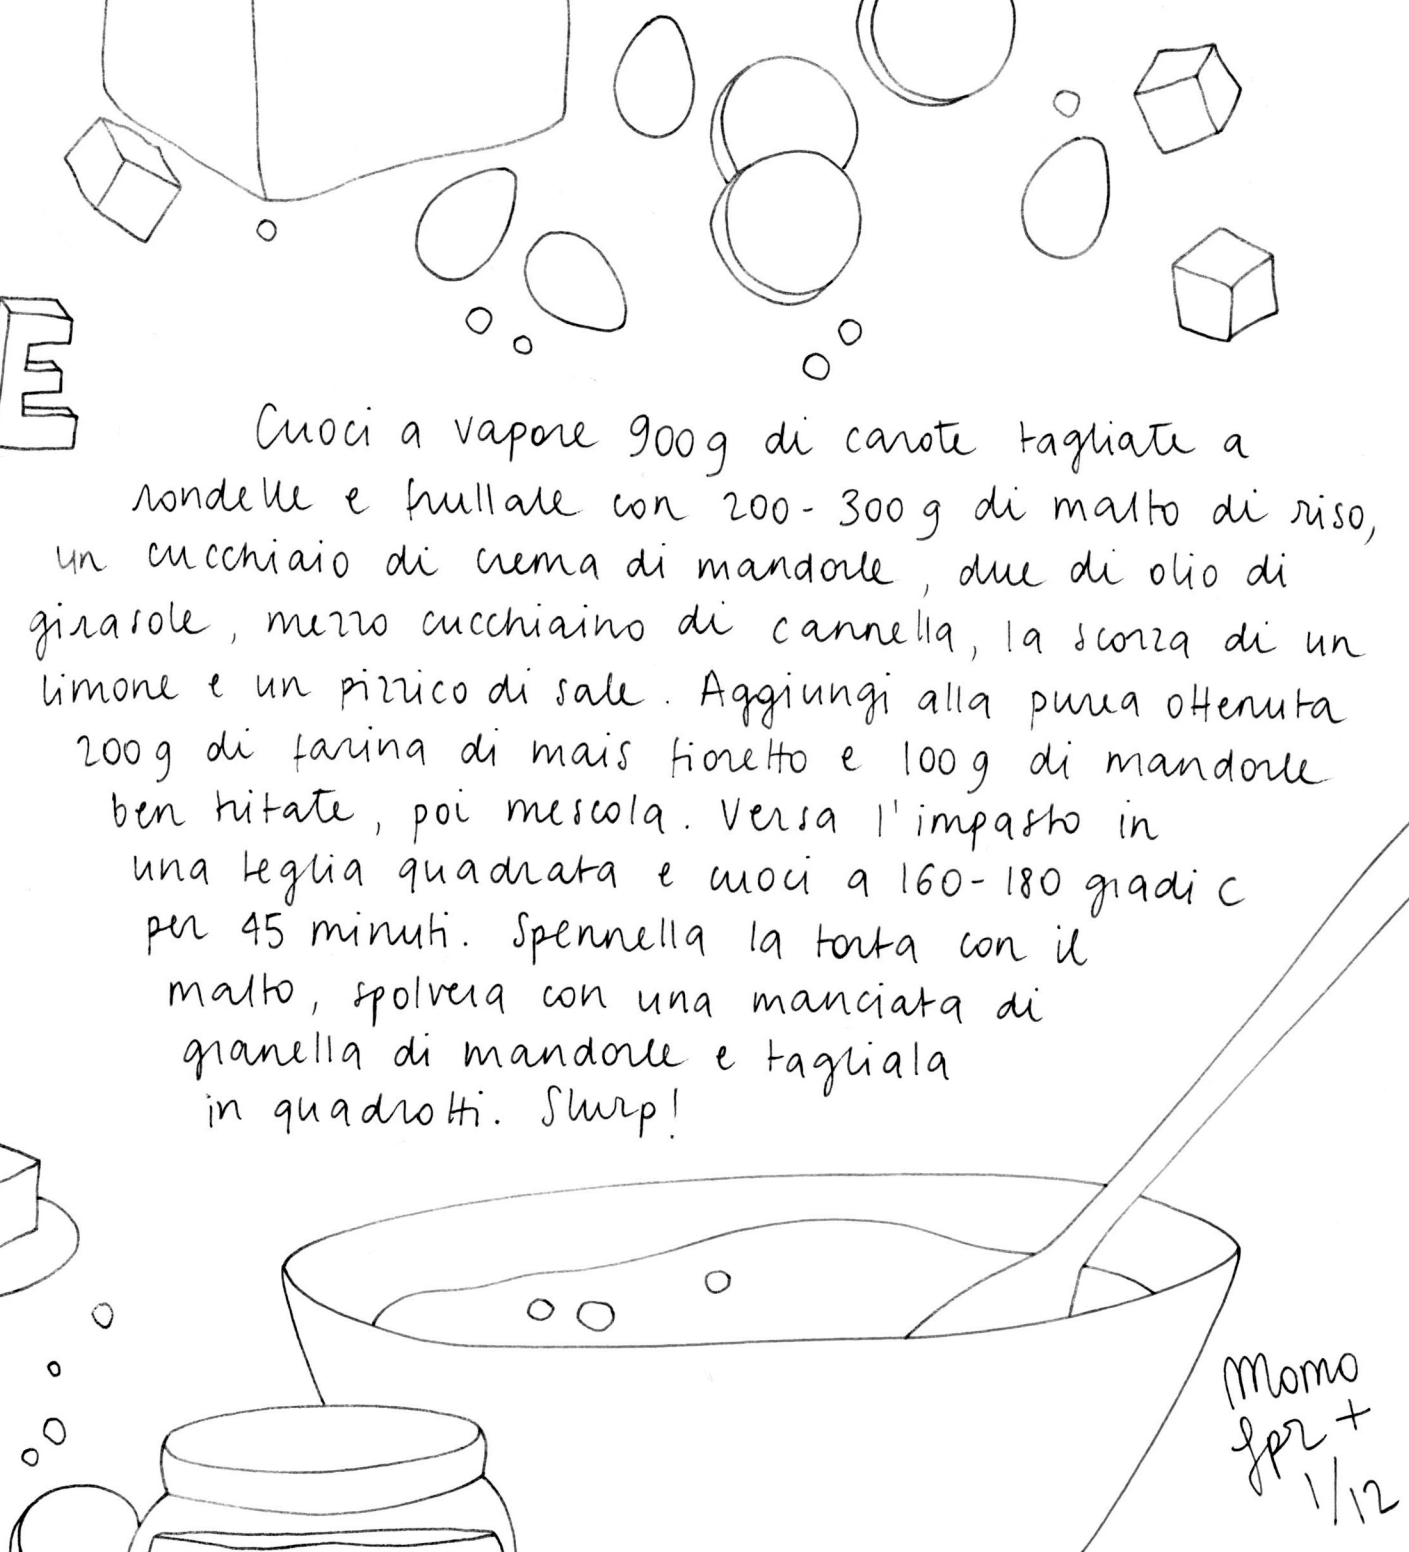 E
Cuoci a vapore 900g di carote tagliate a
rondelle e frullale con 200-300g di malto di riso,
un cucchiaio di crema di mandorle, due di olio di
girasole, mezzo cucchiaino di cannella, la scorza di un
limone e un pizzico di sale. Aggiungi alla purea ottenuta
200g di farina di mais fioretto e 100g di mandorle
ben tritate, poi mescola. Versa l'impasto in
una teglia quadrata e cuoci a 160-180 gradi C
per 45 minuti. Spennella la torta con il
malto, spolvera con una manciata di
granella di mandorle e tagliala
in quadrotti. Slurp!
Momo
1/12